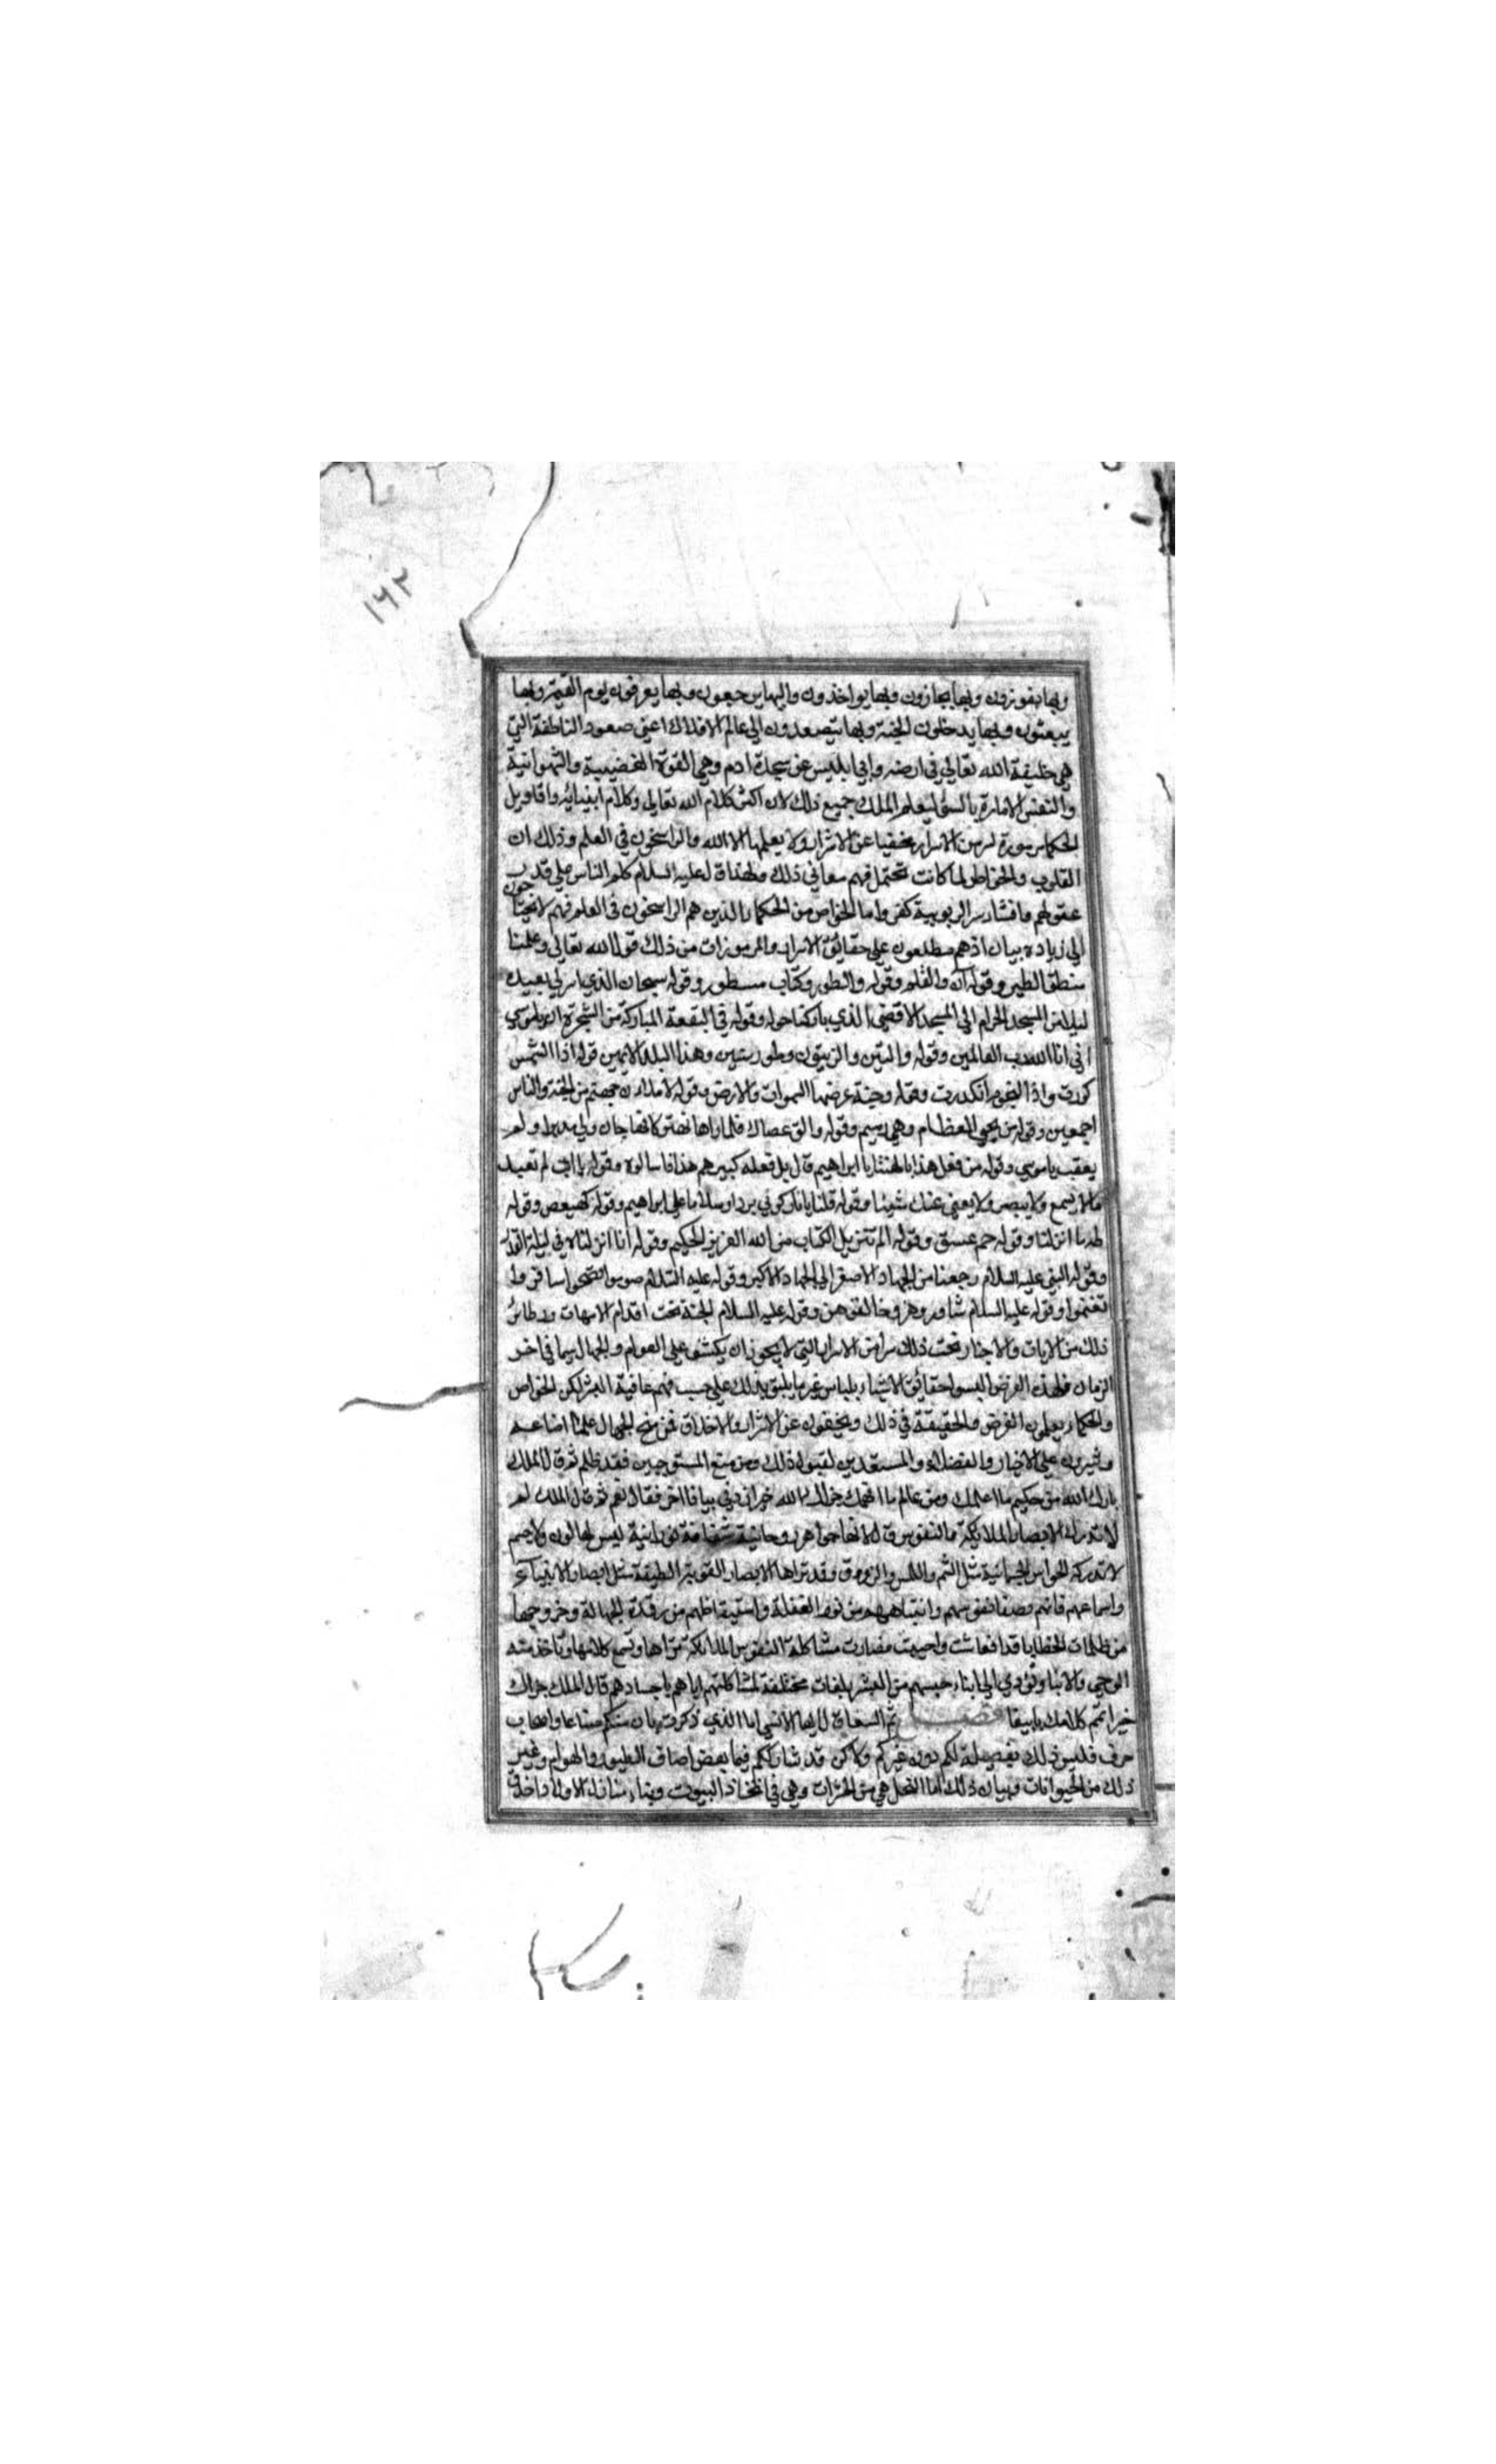 ١٦٢
وبها يفوزون وبها يجازون وبها يواخذون واليها يرجعون وبها يعرفون يوم القيمة وبها
يبعثون وبها يدخلون الجنة وبها يتصعدون الى عالم الافلاك اعني صعود الناطقة التي
هي خليفة الله تعالي في ارضه وابي ابليس عن سجدة ادم وهي القوة الغضبية والشهوانية
والنفس الامارة بالسؤ ليعلم الملك جميع ذلك لان اكثر كلام الله تعالي وكلام انبيائه واقاويل
الحكماء رموزة لسر من الاسرار مخفيا عن الاشرار ولا يعلمها الا الله والراسخون في العلم وذلك ان
القلوب والخواطر لما كانت تحتمل فهم معاني ذلك ولهذا قال عليه السلام كلم الناس علي قدر
عقولهم وافشاء سر الربوبية كفر واما الخواص من الحكماء الذين هم الراسخون في العلم فهم لا يحتاجون
الي زيادة بيان اذ هم مطلعون علي حقائق الاسرار والمرموزات من ذلك قول الله تعالي وعلمنا
منطق الطير وقوله ن والقلم وقوله والطور وكتاب مسطور وقوله سبحان الذي اسرى بعبده
ليلا من المسجد الحرام الي المسجد الاقصى الذي باركنا حوله وقوله في البقعة المباركة من الشجرة ان يا موسي
اني انا الله رب العالمين وقوله والتين والزيتون وطور سينين وهذا البلد الامين قوله اذا الشمس
كورت واذا النجوم انكدرت وقوله وجنة عرضها السموات والارض وقوله لاملان جهنم من الجنة والناس
اجمعين وقوله من يحيي العظام وهي رميم وقوله والق عصاك فلما راها تهتز كانها جان ولي مدبرا ولم
يعقب يا موسي وقوله من فعل هذا بالهتنا يا ابراهيم قال بل فعله كبيرهم هذا فاسالوه وقوله يا ابت لم تعبد
ما لا يسمع ولا يبصر ولا يغني عنك شيئا وقوله قلنا يا نار كوني بردا وسلاما علي ابراهيم وقوله كهيعص وقوله
طه ما انزلنا وقوله حم عسق وقوله الم تنزيل الكتاب من الله العزيز الحكيم وقوله انا انزلناه في ليلة القدر
وقوله النبي عليه السلام رجعنا من الجهاد الاصغر الي الجهاد الاكبر وقوله عليه السلام صوموا تصحوا سافروا
تغنموا وقوله عليه السلام شاوروهن وخالفوهن وقوله عليه السلام الجنة تحت اقدام الامهات ونظائر
ذلك من الايات والاخبار تحت ذلك سر من الاسرار التي لا يجوز ان يكشف علي العوام والجهال سيما في اخر
الزمان فلهذا الغرض البسوا حقائق الاشياء بلباس غير ما يليق بذلك علي حسب فهم عاقبة البشر لكن الخواص
والحكماء يعلمون الغرض والحقيقة في ذلك ويخفون عن الاشرار والاخلاق فمن منح الجهال علما اضاعه
وشيرون علي الاخيار والفضلاء والمستعدين لقبول ذلك ومن منع المستوجبين فقد ظلم ثم قال الملك
بارك الله من حكيم ما اعلمك ومن عالم ما افهمك جزاك الله خيرا زدني بيانا اخر فقال نعم ثم قال الملك لم
لا تدرك الابصار الملايكة والنفوس قال لانها جواهر روحانية شفافة نورانية ليس لها لون ولا جسم
لا تدركه الحواس الجسمانية مثل الشم واللمس والذوق وقد تراها الابصار القوية اللطيفة مثل ابصار الانبياء
واسماعهم فانهم وصفا نفوسهم وانتباههم من نوم الغفلة واستيقاظهم من رقدة الجهالة وخروجها
من ظلمات الخطايا قد انعاشت واحييت فصارت مشاكلة النفوس الملايكة تراها وتسمع كلامها وتاخذ منه
الوحي والانباء وتؤدي الي ابناء جنسهم من البشر بلغات مختلفة لمشاكلتهم اياهم باجسادهم قال الملك جزاك
خيرا تمم كلامك يا ببغا فصـــل ثم الببغا قال ايها الانسي اما الذي ذكرت بان منكم صناعا واصحاب
حرف فليس ذلك بفضيلة لكم دون غيركم ولكن قد شاركتم فيها بعض اصناف الطيور والهوام وغير
ذلك من الحيوانات وبيان ذلك اما النحل هي من الحشرات وهي في اتخاذ البيوت وبناء منازل الاولاد احذق